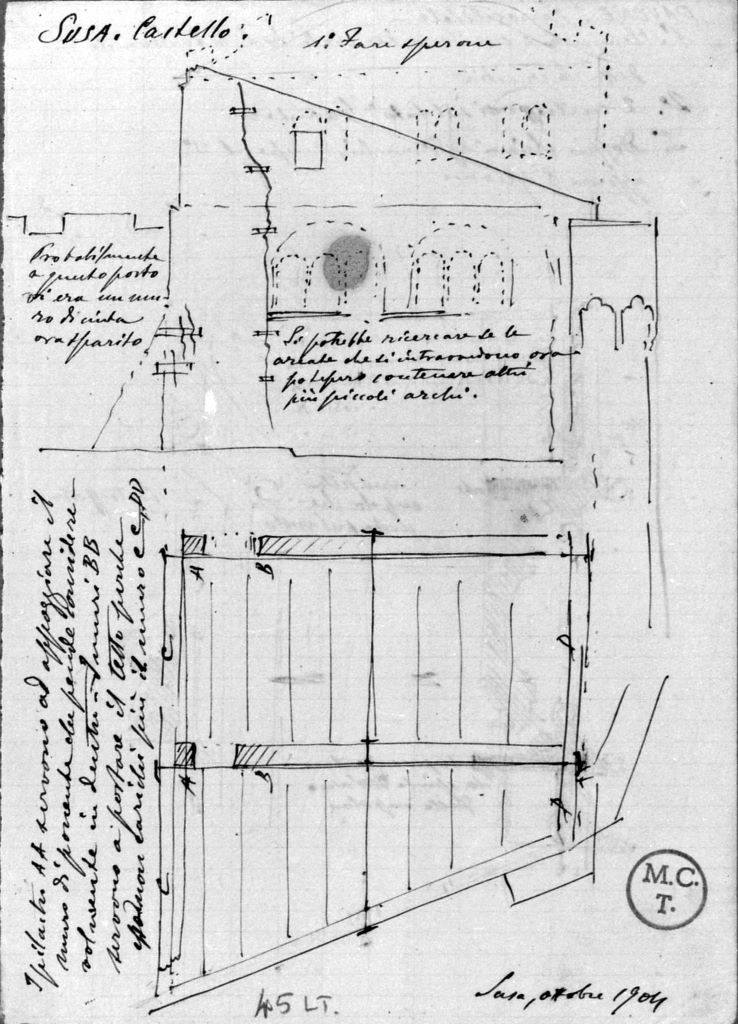 SUSA. Castello.
1º. Fare sperone
Probabilmente
a questo posto
vi era un mu-
ro di cinta
ora sparito
Si potrebbe ricercare se le
arcate che si intravedono ora
potessero contenere altri
più piccoli archi.
A
B
C
D
A
B
D
C
I pilastri AA servono ad appoggiare il
muro di ponente che pende considere-
volmente in dentro - I muri BB
servono a portare il tetto perché
non carichi più il muro CC, DD
M.C.
T.
45 LT.
Susa, ottobre 1904